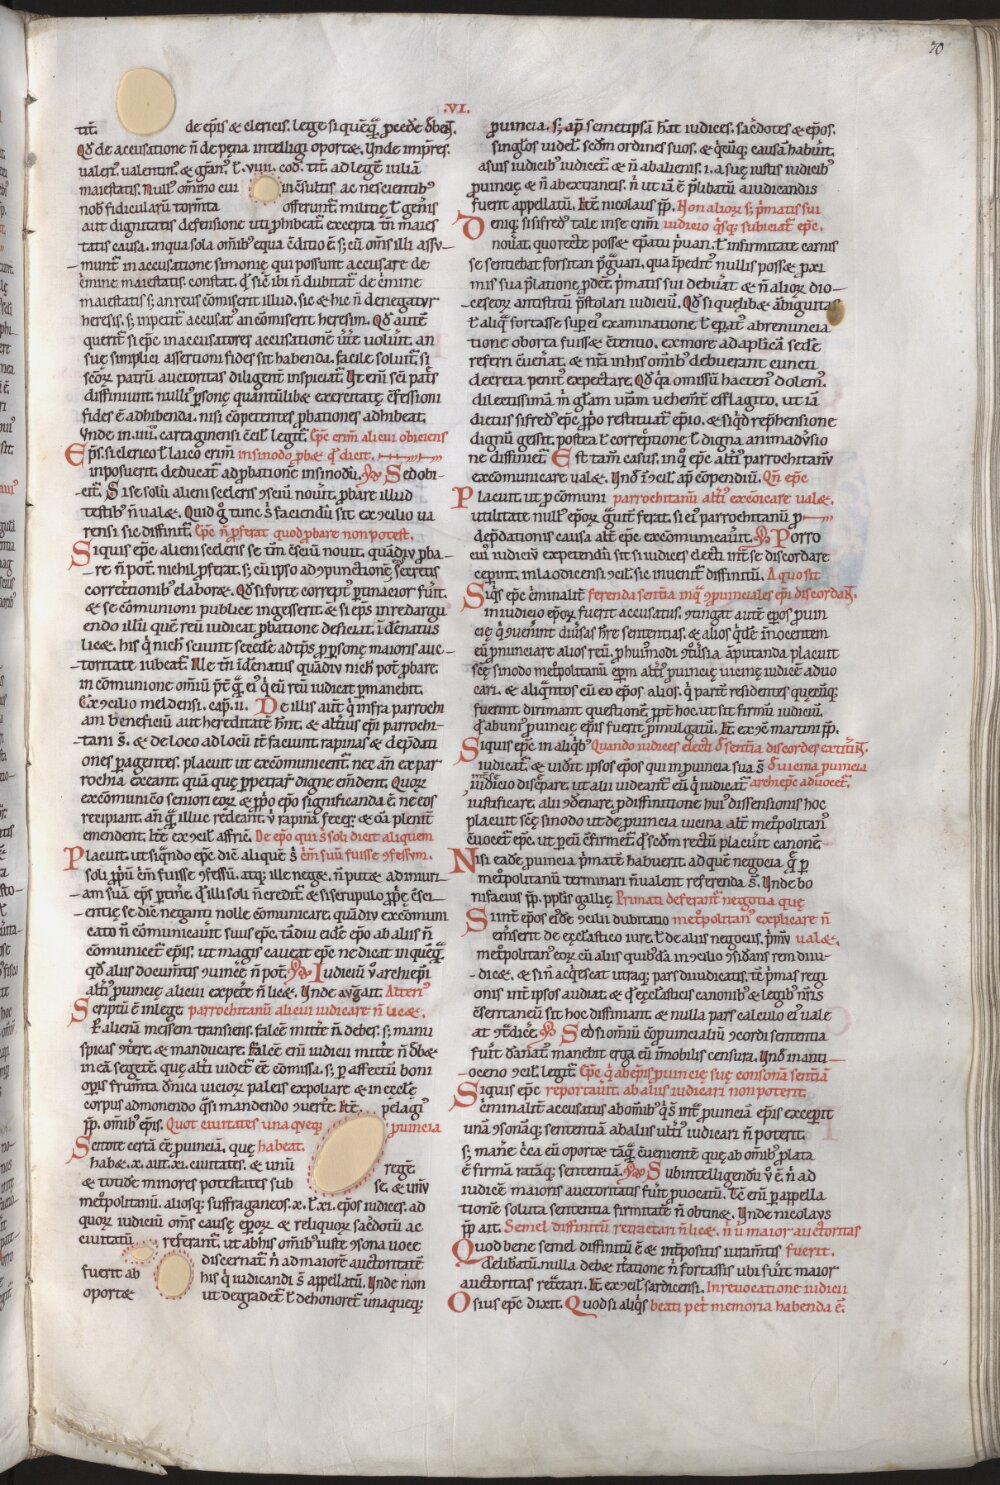 70
.VI.
tit̅. de ep̅is & clericis. lege si que̅q̨ p̲cede d̅beŋ.
Q̅d de accusatione n̅ de pena intelligi oporte&. Unde imp̅res.
valen̅. valentin̅. & g̅ran̅. l̅. viiii. cod̅. tit̅. ad lege̅ iulia̅
maiestatis. Null' om̅ino cui in c̅sultis ac nescientib'
nob̅ fidicularu̅ torm̅ta offerunt̅. militię l̅ gen̅is
aut dignitatis defensione uti p̲hibeat̅. excepta tn̅ maies
tatis causa. in qua sola om̅ib' equa c̅ditio e̅. s; cu̅ om̅s illi assu
munt̅ in accusatione simonię qui possunt accusare de
c̅mine maiestatis. constat. q̅ sic̅ ibi n̅ dubitat̅ de c̅mine
maiestatis s; an reus co̅miserit illud. sic & hic n̅ denegatur
heresis. s; inpetit̅ accusat' an co̅miserit heresim. Q̅d aute̅
querit̅ si ep̅c in accusatores accusatione̅ u̅t̅e uoluit. an
suę simplici assertioni fides sit habenda. facile soluit̅. si
sc̅oꝝ patru̅ auctoritas diligent̅ inspiciat̅. Ut eni̅ sc̅i pat̅s
diffiniunt. nulli' p̲sonę quantu̅libe& exercitatę c̅fessioni
fides e̅ adhibenda. nisi co̅petentes p̲bationes adhibeat.
Unde in .iiii. cartaginensi c̅cil' legit̅. Ep̅c crim̅ alicui obiciens
Ep̅s. si clerico l̅ laico crim̅ in sinodo p̲be& q̅ dicit.
inposuerit. deducat̅ ad p̲batione̅ in sinodu̅. Sed obi
cit̅. Si se solu̅ alieni sceleris ꝯsciu̅ nouit. p̲bare illud
testib' n̅ uale&. Quid g̊ tunc s̅ faciendu̅ sit ex ꝯcilio ua
rensi sic diffinit̅. Ep̅c n̅ p̲ferat quod p̲bare non potest.
Siquis ep̅c alieni sceleris se tm̅ c̅sciu̅ nouit. qua̅diu p̲ba
re n̅ pot̅. nichil p̲ferat. s; cu̅ ipso ad ꝯpunctione̅ secretis
correctionib' elabore&. Q̅d si forte correpti' p̲tinacior fu̅it.
& se co̅munioni publice ingesserit. & si ep̅s in redargu
endo illu̅ que̅ reu̅ iudicat p̲batione deficiat. i̅de̅natus
lice&. his q̅ nich̅ sciunt secede ad tp̅s p̲ p̲sonę maioris auc
toritate iubeat̅. Ille tn̅ i̅de̅natus qua̅diu nich̅ pot̅ p̲bare.
in comunione om̅iu̅ p̅t̅ q̨ ei' q̅ eu̅ reu̅ iudicat p̲manebit.
Ex ꝯcilio meldensi. cap̅. ii. De illis aut̅ q̅ infra parrochi
am beneficiu̅ aut hereditate̅ h̅nt. & alterius ep̅i parrochi
tani s̅. & de loco ad locu̅ it̅ faciunt rapinas & dep̲dati
ones p̲agentes. placuit ut exco̅municent̅. nec an̅ ex par
rochia exeant. qua̅ quę p̲petrar̅ digne em̅dent. Quoꝝ
exco̅municat̅o seniori eoꝝ & p̲p̅o ep̅o significanda e̅. ne eos
recipiant. an̅ q̨ illuc redea̅t. u̅ rapina̅ fecer̅. & oi̅a plenit̅
emendent. Ite̅ ex ꝯcil' affric̅. De ep̅o qui s̅ soli dicit aliquem
Placuit. ut si q̅ndo ep̅c dic̅ alique̅ s̅ c̅m suu̅ fuisse ꝯfessum.
soli p̲p̅u̅ c̅m fuisse ꝯfessu̅. atq; ille nege&. n̅ pute& ad iniuri
am sua̅ ep̅s p̲tine̅. q̅ illi soli n̅ credit̅. & si scrupulo p̲p̅ę c̅sci
entię se dic̅ neganti nolle co̅municare. qua̅diu exco̅muni
cato n̅ co̅municauit suus ep̅c. ta̅diu eide̅ ep̅o ab aliis n̅
co̅municet̅ ep̅is. ut magis caueat ep̅c ne dicat in que̅q̨
q̅d aliis docum̅tis ꝯuince̅ n̅ pot̅. Iudiciu̅ u̅ archiep̅i
alt̅i' p̲uincię alicui expete̅ n̅ lice&. Unde aug̅ ait. Alteri'
Scriptu̅ e̅ in lege. parrochitanu̅ alicui iudicare n̅ lice&.
P̲ aliena̅ messem transiens. falce̅ mitte̅ n̅ debes. s; manu
spicas ꝯtere̅. & manducare. Falce̅ eni̅ iudicii mitte̅ n̅ d̅be&
in ea̅ segete̅. quę alt̅i uidet̅ ee̅ co̅missa. s; p̲ affectu̅ boni
op̲is frum̅ta d̅nica uicioꝝ paleis expoliare & in eccl̅e
corpus admonendo q̅si mandendo ꝯuerte̅. Ite̅ pelagi'
pp̅. om̅ib' ep̅is. Quot ciuitates una queq; p̲uincia
Scitote certa̅ ee̅ p̲uincia̅. quę habeat.
habe&. x. aut. xi. ciuitates. & unu̅ rege̅.
& totide̅ minores potestates sub se. & unu̅
met̅politanu̅. aliosq; suffraganeos .x. l̅. xi. ep̅os iudices. ad
quoꝝ iudiciu̅ om̅s causę ep̅oꝝ & reliquoꝝ sac̅dotu̅ ac
ciuitatu̅ referant̅. ut ab his om̅ib' iuste ꝯsona uoce
discernat̅ n̅ ad maiore̅ auctoritate̅
fuerit ab his q̅ iudicandi s̅ appellatu̅. Unde n̅ on
oporte& ut degradet̅ l̅ dehonoret̅ unaqueq;
p̲uincia. s; ap̅ semetipsa̅ h̅at iudices. sac̅dotes & ep̅os.
singl̅os uidel̅. sc̅dm ordines suos. & q̅cu̅q; causa̅ habu̅it.
a suis iudicib' iudicet̅. & n̅ ab alienis. i. a suę iustis iudicib'
p̲uincię & n̅ ab extraneis. n̅ ut ia̅ e̅ p̲libatu̅ a iudicandis
fuerit appellatu̅. Ite̅ nicolaus pp̅. Non alioꝝ s; p̅matis sui
Deniq; si sifred' tale in se crim̅ iudicio q̅sq; subiciat̅ ep̅c.
nouat̅. quo recte posse& ep̅atu p̲uari. l̅ infirmitate carnis
se sentiebat forsitan p̲g̅uari. qua i̅pedit' nullis posse& p̲xi
mis sua p̲latione p̲de̅. p̅matis sui debu̅at & n̅ alioꝝ dio
ceseoꝝ antistitu̅ p̲stolari iudiciu̅. Q̅d si quęlibe& a̅biguitas
l̅ aliq̅ fortasse sup̲ ei' examinatione l̅ ep̅at' abrenuncia
tione oborta fuisse& c̅tentio. ex more ad ap̅lica̅ sede̅
referri c̅uen̅at. & nr̅a in his om̅ib' debuerant cuncti
decreta penit' expectare. Q̅d q̅a omissu̅ hacten' dolem'.
dilectissima̅ in g̅lam ur̅am uehem̅t̅ efflagito. ut ia̅
dictus sifred' ep̅c p̲p̅o restituat̅ ep̅io. & siq̅d rep̅hensione
dignu̅ gessit. postea l̅ correptione l̅ digna animadu̅sio
ne diffiniet̅. Est tam̅ casus. in q̊ ep̅c alt̅i' parrochitanu̅
excomunicare uale&. Un̅ i̅ ꝯcil' ap̅ co̅pendiu̅. Qn̅ ep̅c
Placuit. ut p̲ comuni parrochitanu̅ alt̅i' exco̅icare uale&.
utilitate null' ep̅oꝝ g̅uit̅ ferat. si ei' parrochitanu̅ p̲
dep̲dationis causa alt̅ ep̅c exco̅municau̅it. Porro
cui' iudiciu̅ expetendu̅ sit si iudices electi int̅ se discordare
cep̲int. in laodicensi ꝯcil' sic inuenit̅ diffinitu̅. A quo sit
Siq̅s ep̅c c̅minalit̅ ferenda sent̅ia in q̊ ꝯp̲uinciales ep̅i discordaŋ.
in iudicio ep̅oꝝ fuerit accusatus. ꝯtingat aute̅ ep̅os p̲uin
cię q̅ ꝯuen̅int diu̅sas h̅re sententias. & alios q̅de̅ i̅nocentem
eu̅ p̲nunciare alios reu̅. p̲ hui'modi ꝯt̅u̅sia a̅putanda placuit
sc̅ę sinodo met̅politanu̅ ep̅m alt̅i' p̲uincię uicinę iudice̅ aduo
cari. & aliq̅ntos cu̅ eo ep̅os alios. q̅ parit̅ residentes quęcu̅q;
fuerint dirimant questione̅. p̲pt̅ hoc. ut sit firmu̅ iudiciu̅.
q̅ ab uni' p̲uincię ep̅is fuerit p̲mulgatu̅. Ite̅ ex ꝯc̅ martini pp̅.
Siquis ep̅c in aliq̅b' Quando iudices electi d̅ sent̅ia discordes extit̅iŋ.
iudicat̅. & uid̅it ipsos ep̅os qui in p̲uincia sua s̅ d̅ uicina p̲uincia
iudicio disc̅pare. ut alii uideant̅ eu̅ q̅ iudicat̅ archiep̅c aduocet̅.
iustificare. alii ꝯde̅nare. p̲ diffinitione hui' dissensionis hoc
placuit sc̅ę sinodo ut de p̲uincia uicina alt̅ met̅politan'
c̅uocet̅ ep̅c. ut p̲ eu̅ c̅firmet̅ q̅ sc̅dm rectu̅ placu̅it canone̅.
Nisi eade̅ p̲uincia p̅mate̅ habuerit. ad que̅ negocia q̅ p̲
met̅politanu̅ terminari n̅ ualent referenda s̅. Unde bo
nifacius pp̅. pp̲l̅is gallię. Primati deferant̅ negotia quę
Si int̅ ep̅os eide̅ ꝯcilii dubitatio met̅politan' explicare n̅
em̅serit de eccl̅astico iure. l̅ de aliis negociis. p̅mu̅ uale&.
met̅politan' eoꝝ cu̅ aliis quib'da̅ in ꝯcilio ꝯsidans rem diiu
dice&. & si n̅ acq̅escat utraq; pars diiudicatis. tc̅ p̅mas regi
onis int̅ ipsos audiat. & q̅ eccl̅asticis canonib' & legib' nr̅is
c̅sentaneu̅ sit. hoc diffiniant. & nulla pars calculo ei' uale
at ꝯt̅dice̅. Sed si omniu̅ co̅p̲uincialiu̅ ꝯcordi sententia
fu̅it da̅nat'. manebit erga eu̅ i̅mobilis censura. Un̅ in anti
oceno ꝯcil' legit̅. Ep̅c q̅ ab ep̅is p̲uincię suę consona̅ sent̅ia̅
Siquis ep̅c reportau̅it. ab aliis iudicari non poterit.
c̅minalit̅ accusatus ab om̅ib' q̅ s̅ int̅ p̲uincia̅ ep̅is exceperit
una̅ ꝯsona̅q; sententia̅ ab aliis ult̅i' iudicari n̅ poterit.
s; mane̅ c̅ca eu̅ oporte& ta̅q̨ c̅ueniente̅ quę ab om̅ib' p̲lata
e̅ firma̅ rata̅q; sententia̅. Subintelligendu̅ u̅ e̅. n̅ ad
iudice̅ maioris auctoritatis fu̅it p̲uocatu̅. Tc̅ eni̅ p̲ appella
tione̅ soluta sententia firmitate̅ n̅ obtine&. Unde nicolaus
pp̅ ait. Semel diffinitu̅ retractari n̅ lice&. n̅ u̅ maior auctoritas
Quod bene semel diffinitu̅ e̅ & int̅positis iuram̅tis fuerit.
deliberatu̅. nulla debe& it̅atione n̅ fortassis ubi fu̅it maior
auctoritas rec̅tari. Ite̅ ex ꝯcil' sardicensi. In reuocatione iudicii
Osius ep̅c dixit. Quod si aliq̅s beati pet̅ memoria habenda e̅.